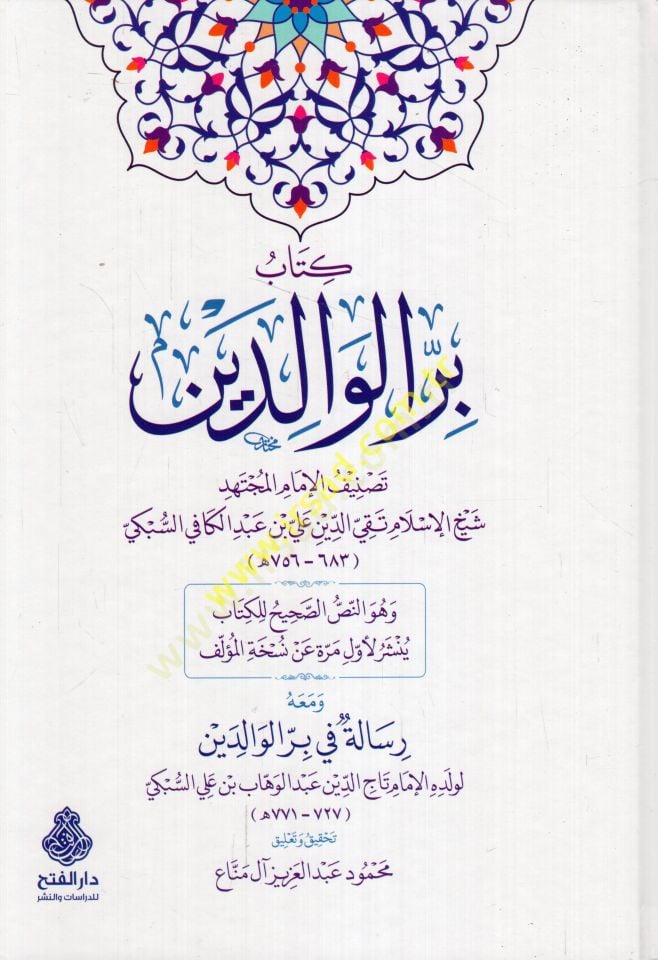 كِتَابُ
بِرِّ الوَالِدَيْن
تَصْنِيْفُ الإِمَامِ المُجْتَهِدِ
شَيْخِ الإِسْلَامِ تَقِيِّ الدِّيْنِ عَلِيِّ بْنِ عَبْدِ الكَافِي السُّبْكِيِّ
(٦٨٣ - ٧٥٦هـ)
وَهُوَ النَّصُّ الصَّحِيْحُ لِلْكِتَابِ
يُنْشَرُ لأَوَّلِ مَرَّة عَنْ نُسْخَةِ المُؤَلِّف
وَمَعَهُ
رِسَالَةٌ فِي بِرِّ الوَالِدَيْن
لِوَلَدِهِ الإِمَامِ تَاجِ الدِّيْنِ عَبْدِ الوَهَّابِ بن عَلِي السُّبْكِيِّ
(٧٢٧ - ٧٧١هـ)
تَحْقِيْقُ وَتَعْلِيْق
مَحْمُود عَبْد العَزِيز آل مَنَّاع
دار الفتح
للدراسات والنشر
www.irsad.com.tr